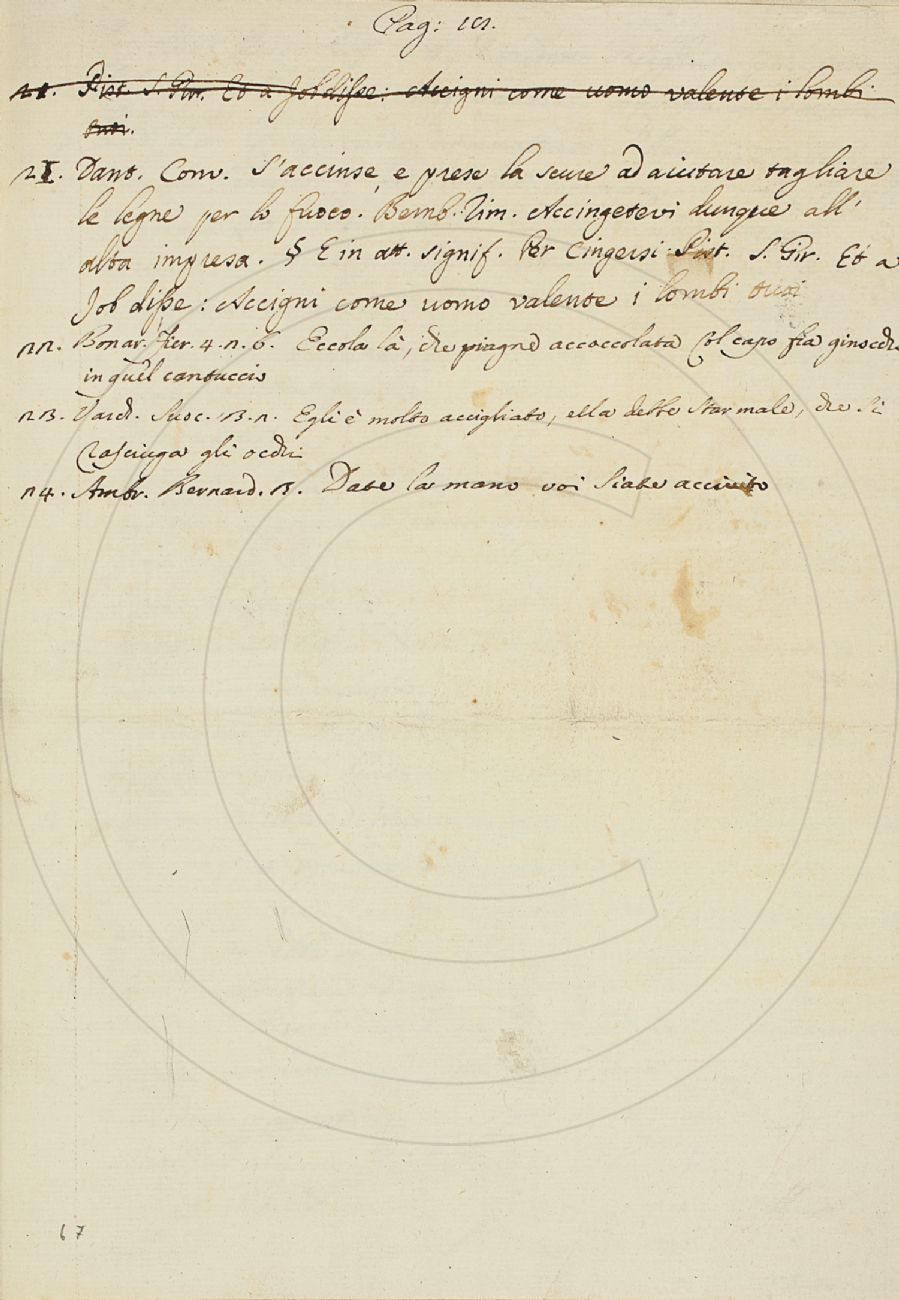 Pag: 101.
21. Pist. S. Gir. Et a Job disse: Accigni come uomo valente i lombi
tuoi.
21. Dant. Conv. S'accinse e prese la scure ad aiutare tagliare
le legne per lo fuoco. Bemb. Rim. Accingetevi dunque all'
alta impresa. § E in att. signif. Per Cingersi Pist. S. Gir. Et a
Job disse: Accigni come uomo valente i lombi tuoi
22. Bonar. Fier. 4. 2. 6. Eccola là, che piagne accoccolata Col capo fra ginocchi
in quel cantuccio
23. Varch. Suoc. 3. 2. Egli è molto accigliato, ella debbe star male, che si
rasciuga gli occhi
24. Ambr. Bernard. 3. Date la mano voi siate accivito
67